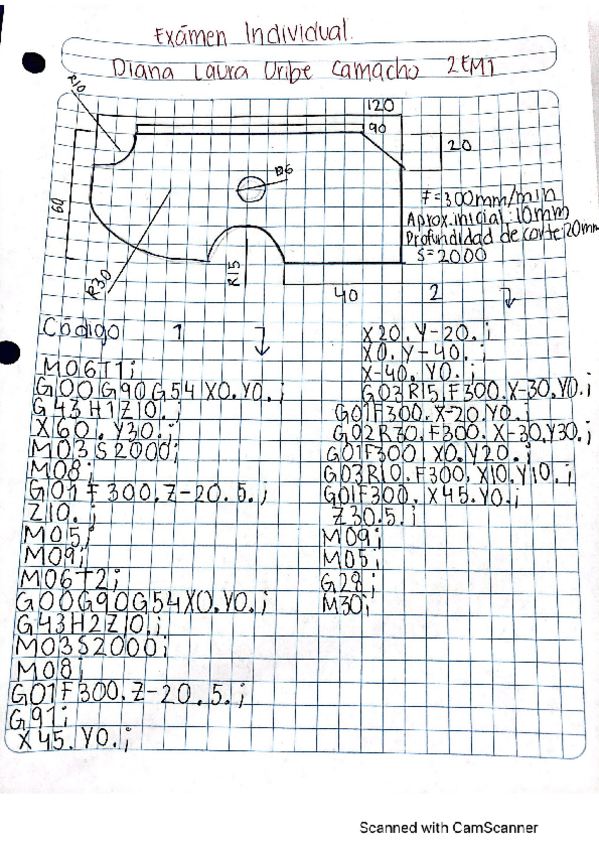 Exámen Individual.
Diana Laura Uribe Camacho 2EM1
R10
120
90
20
Ø6
60
F=300mm/min
Aprox.inicial:10mm
Profundidad de corte:20mm
S=2000
R30
R15
40
2
Código 1
M06T1;
G00G90G54X0.Y0.;
G43H1Z10.;
X60.Y30.;
M03S2000;
M08;
G01F300.Z-20.5.;
Z10.;
M05;
M09;
M06T2;
G00G90G54X0.Y0.;
G43H2Z10.;
M03S2000;
M08;
G01F300.Z-20.5.;
G91;
X45.Y0.;
X20.Y-20.;
X0.Y-40.;
X-40.Y0.;
G03R15.F300.X-30.Y0.;
G01F300.X-20.Y0.;
G02R30.F300.X-30.Y30.;
G01F300.X0.Y20.;
G03R10.F300.X10.Y10.;
G01F300.X45.Y0.;
Z30.5.;
M09;
M05;
G28;
M30;
Scanned with CamScanner